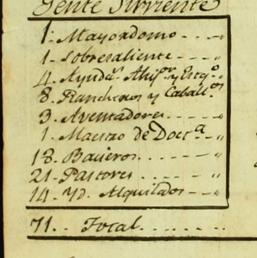 Gente Sirviente
1. Mayordomo
1. Sobresaliente
4. Ayud.s
8. Rancheros y Caball.os
3. Aventadores
1. Maestro de Doct.a
18. Baqueros
21. Pastores
14. Yd. Alquilados
71. Total